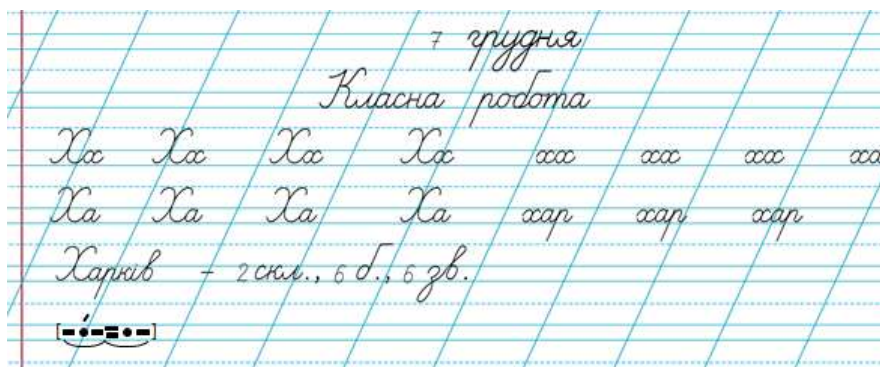 7 грудня
Класна робота
Хх Хх Хх Хх хх хх хх ха
Ха Ха Ха Ха хар хар хар
Харків – 2 скл., 6 б., 6 зв.
[–•́–=•–]